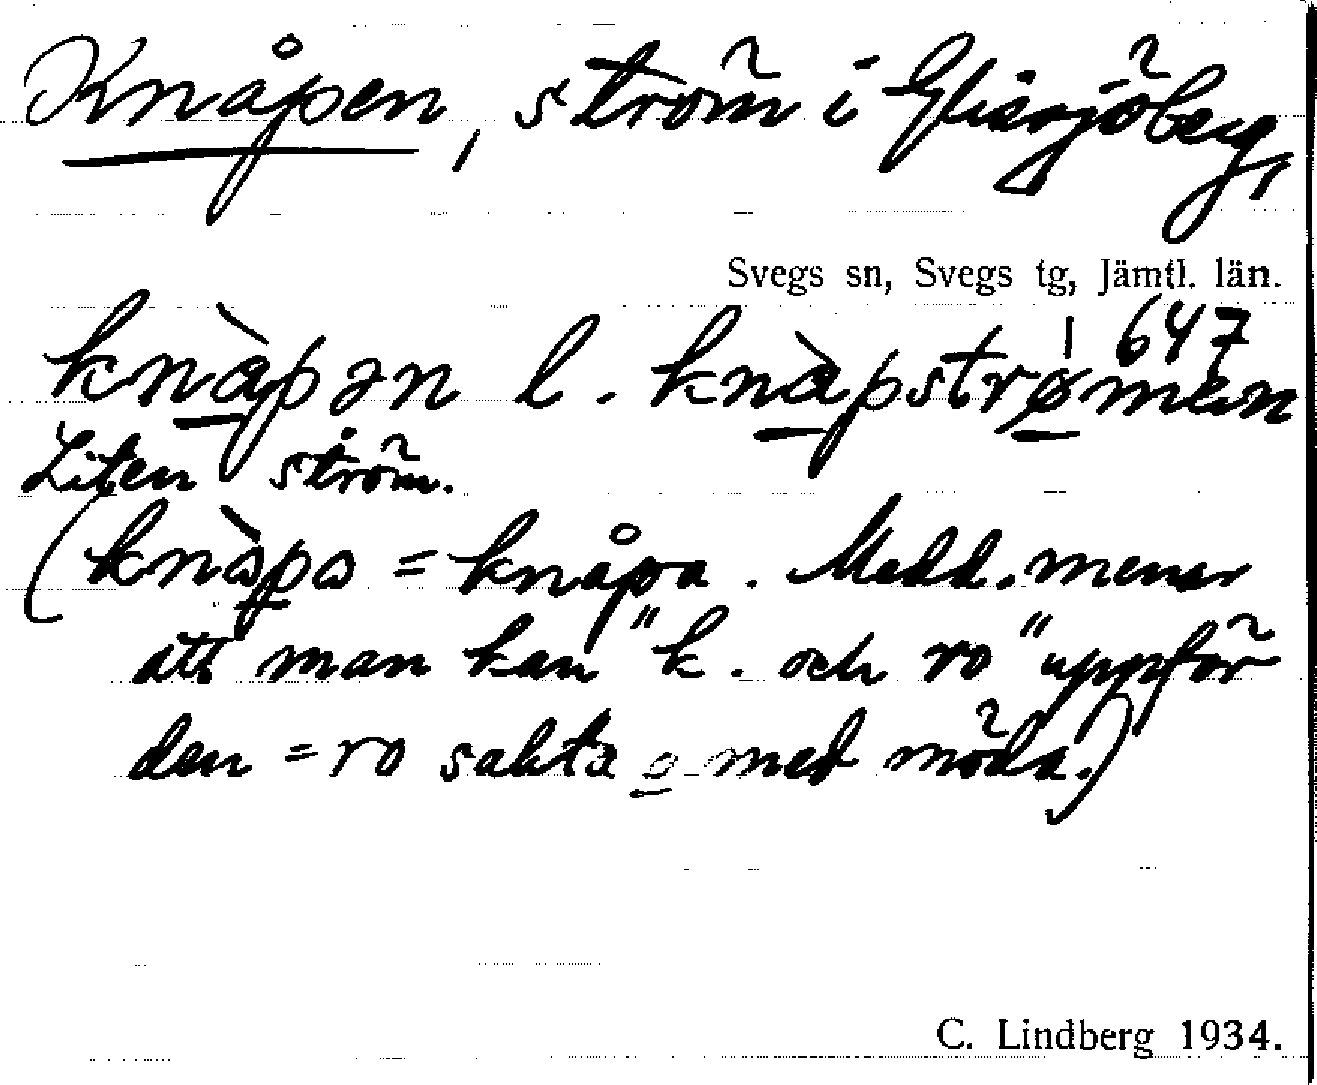 Knåpen, ström i Glissjöberg,
Svegs sn, Svegs tg, Jämtl. län.
647
knàpən l. knàpstrømen
Liten ström.
(knàpa = knåpa. Medd. menar
att man kan "k. och ro" uppför
den = ro sakta o med möda.)
C. Lindberg 1934.